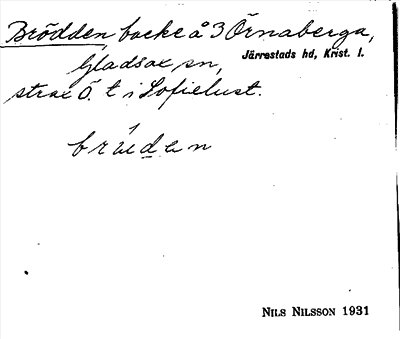 Brödden, backe å 3 Örnaberga,
Gladsax sn, Järrestads hd, Krist. l.
strax Ö. t i Sofielust.
brúẹdẹn
NILS NILSSON 1931